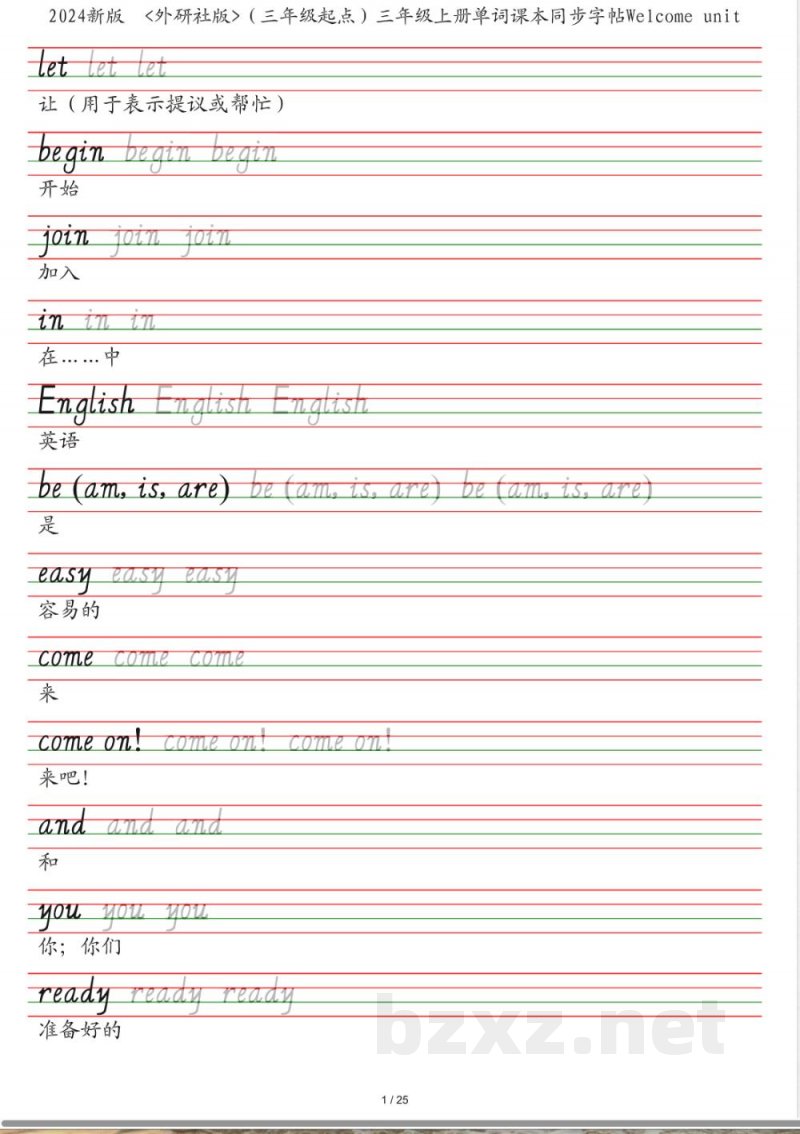 2024新版 <外研社版>(三年级起点)三年级上册单词课本同步字帖Welcome unit
let let let
让(用于表示提议或帮忙)
begin begin begin
开始
join join join
加入
in in in
在……中
English English English
英语
be (am, is, are) be (am, is, are) be (am, is, are)
是
easy easy easy
容易的
come come come
来
come on! come on! come on!
来吧!
and and and
和
you you you
你; 你们
ready ready ready
准备好的
bzxz.net
1 / 25